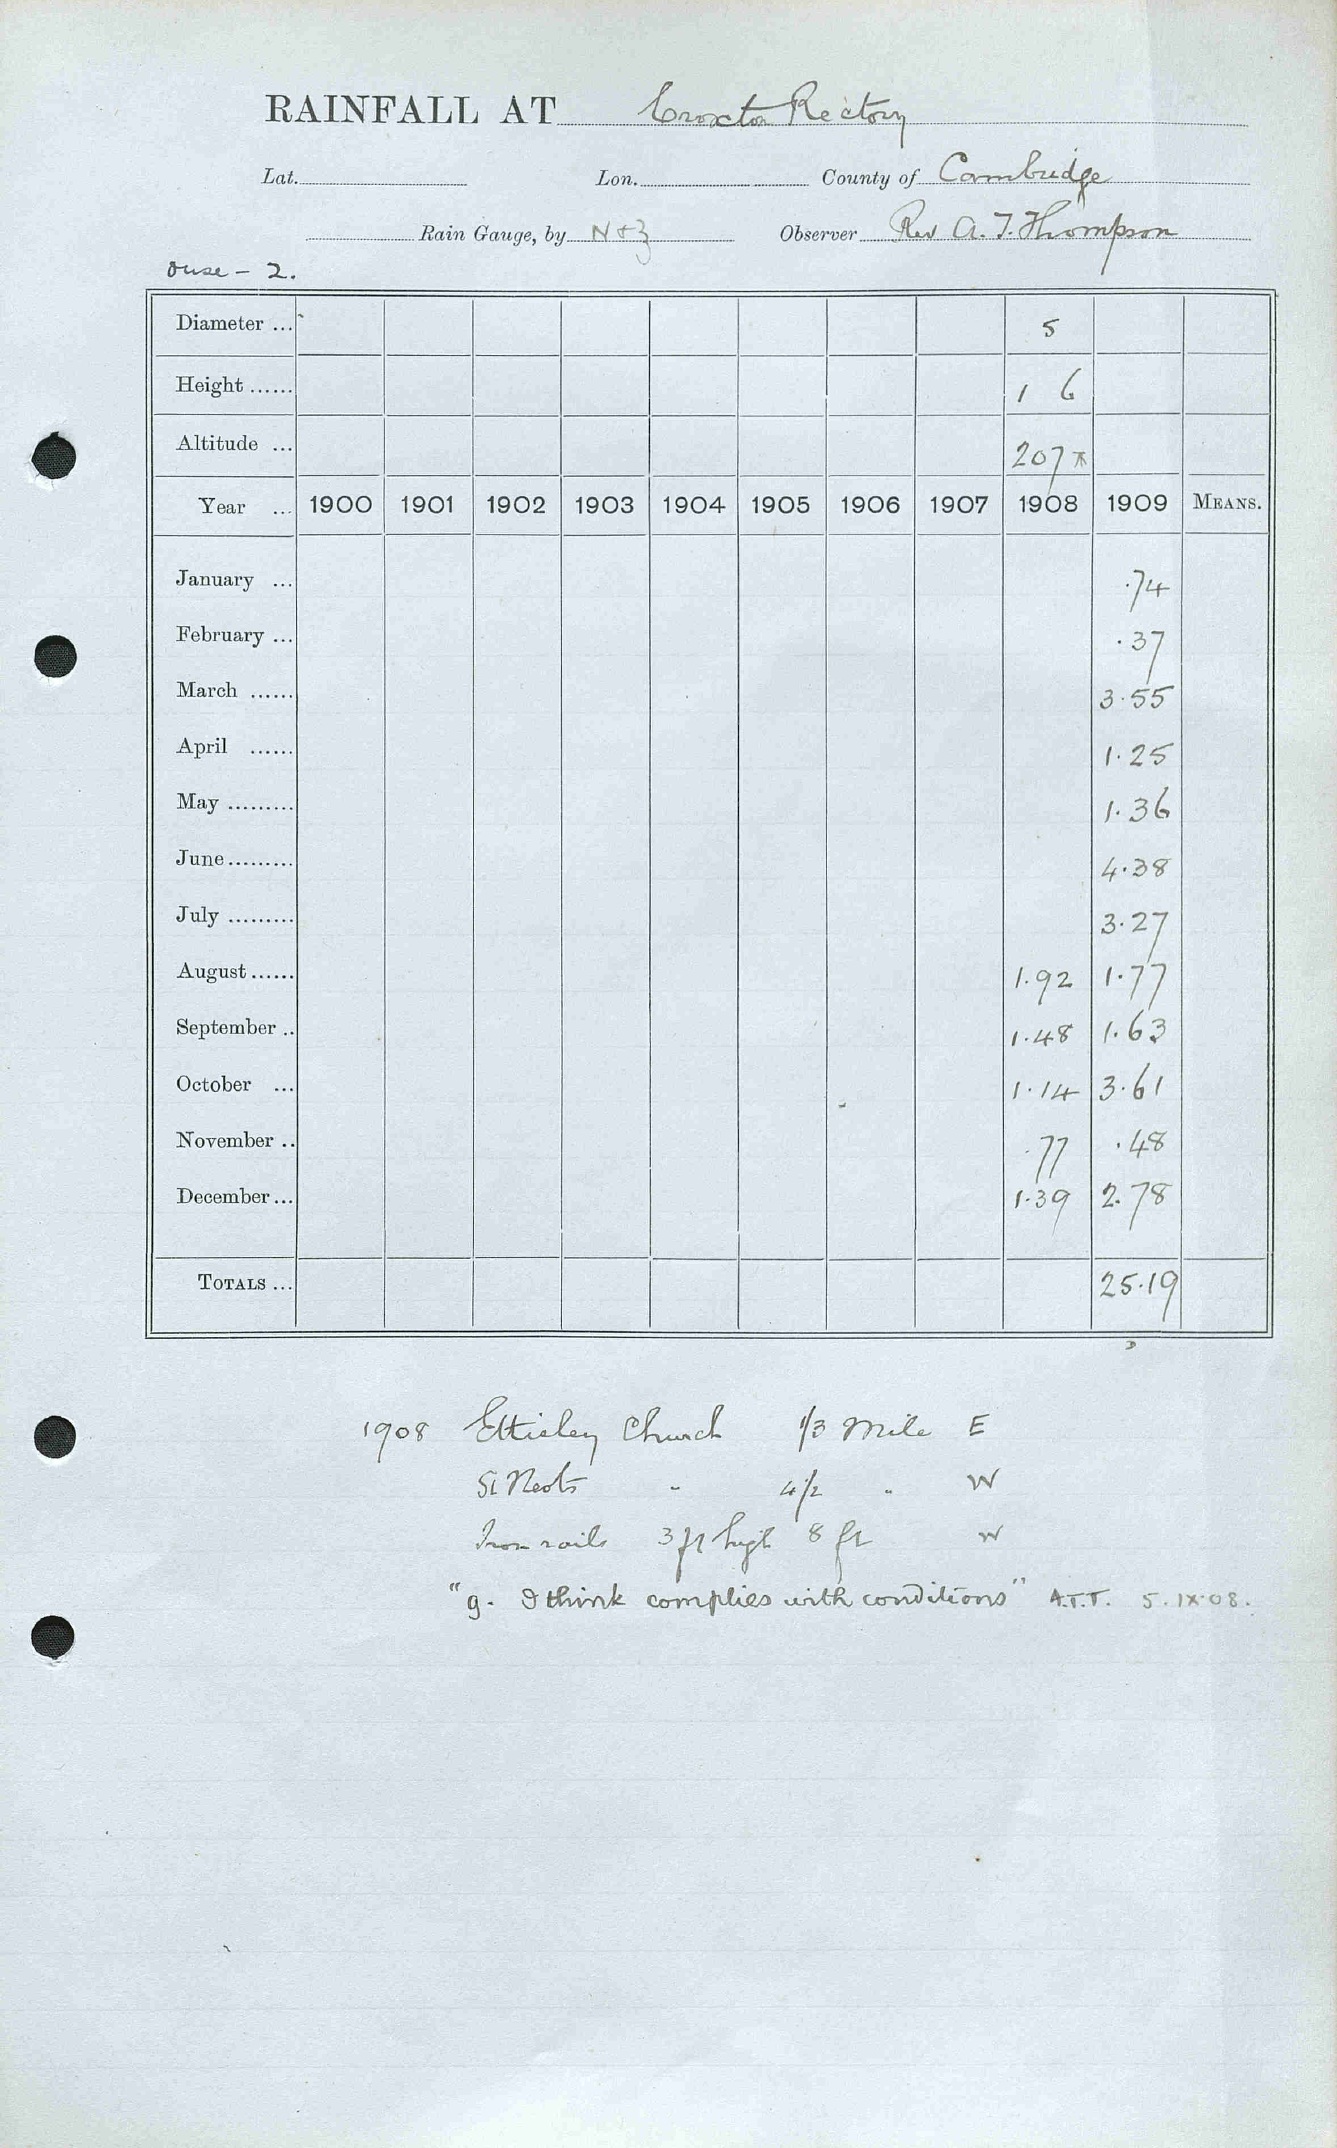 RAINFALL AT Croxton Rectory
Lat. Lon. County of Cambridge
Rain Gauge, by N & Z Observer Rev A. T. Thompson
Ouse - 2.
Diameter ... 5
Height ...... 1 6
Altitude ... 207
Year ... 1900 1901 1902 1903 1904 1905 1906 1907 1908 1909 MEANS.
January ... .74
February ... .37
March ...... 3.55
April ...... 1.25
May ......... 1.36
June ......... 4.38
July ......... 3.27
August ...... 1.92 1.77
September .. 1.48 1.63
October ... 1.14 3.61
November .. .77 .48
December ... 1.39 2.78
TOTALS ... 25.19
1908 Eltisley Church 1/3 Mile E
St Neots " 4 1/2 " W
Iron rails 3 ft high 8 ft W
"g. I think complies with conditions" A.T.T. 5.IX.08.